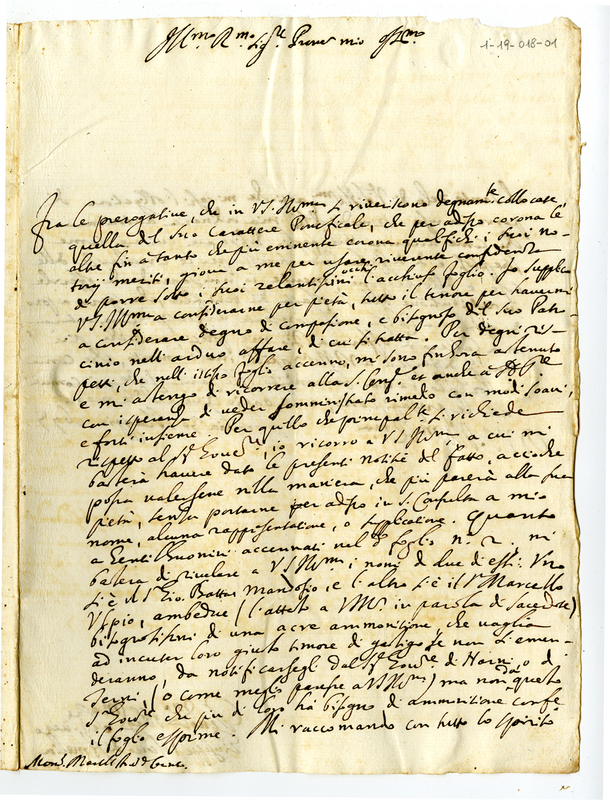 Ill.mo R.mo Sig.re Prone mio Oss.mo
1-19-018-01
Fra le prerogative, che in V.S. Ill.ma si riveriscono degnam.te collocate,
quella del suo Carattere Ponteficale, che per adesso corona le
altre fin a tanto che più eminente corona qualifichi i suoi no-
turij meriti, giova a me per usare riverente confidenza
di porre sotto i suoi zelantissimi occhi l'acchiuso foglio. Io supplico
V.S. Ill.ma a considerarne per pietà, tutto il tenore per havermi
a considerare degno di compassione, e bisognoso del suo Patro-
cinio nell'arduo affare, di cui si tratta. Per degni ris-
petti, che nell'istesso foglio accenno, mi sono finhora astenuto
e mi astengo di ricorrere alla S. Cong. et anche à
con isperanza di veder somministrato rimedio con modi soavi,
e forti insieme. Per quello che principalm.te si richiede
rispetto al S.r Gover.re, io ricorro a V.S. Ill.ma, a cui mi
basterà havere dato le presenti notitie del fatto, accioche
possa valersene nella maniera, che più parerà alla sua
pietà, senza portarne per adesso in S. Consulta a mio
nome, alcuna rappresentatione, o supplicatione. Quanto
a Gentilhuomini accennati nel d.o foglio n. 2. mi
basterà di rivelare a V.S. Ill.ma i nomi di due di essi. Uno
si è il S.r Gio. Battta Mandosio, e l'altro si è il S.r Marcello
ambedue (l'attesto a V.S. Ill.ma in parola di Sacerdote)
bisognosissimi di una acre ammonitione che vaglia
ad incuter loro giusto timore di gastigo se non si emen-
deranno, da notificarsegli dal S.r Gover.re di Narni, o di
Terni (o come meglio paresse a V.S. Ill.ma) ma non da questo
S.r Gover.re che più di loro hà bisogno di ammonitione come
il foglio espone. Mi raccomando con tutto lo spirito
Mons.